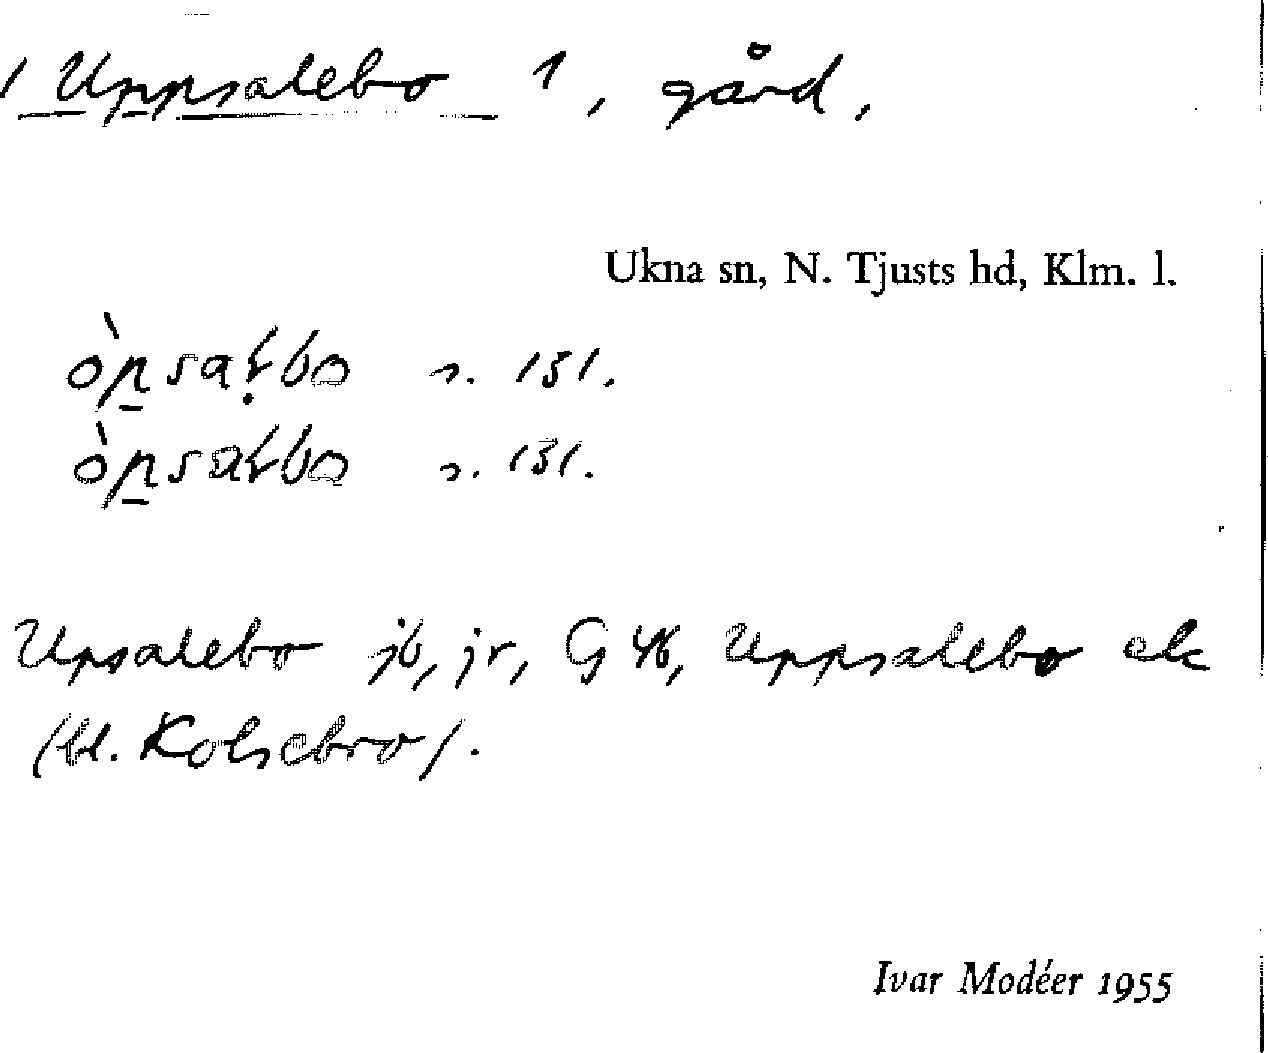 Uppsalebo 1, gård,
Ukna sn, N. Tjusts hd, Klm. l.
s. 131.
s. 131.
Upsalebo jb, jr, G 46, Uppsalebo ek
(bl. Kolsebro).
Ivar Modéer 1955